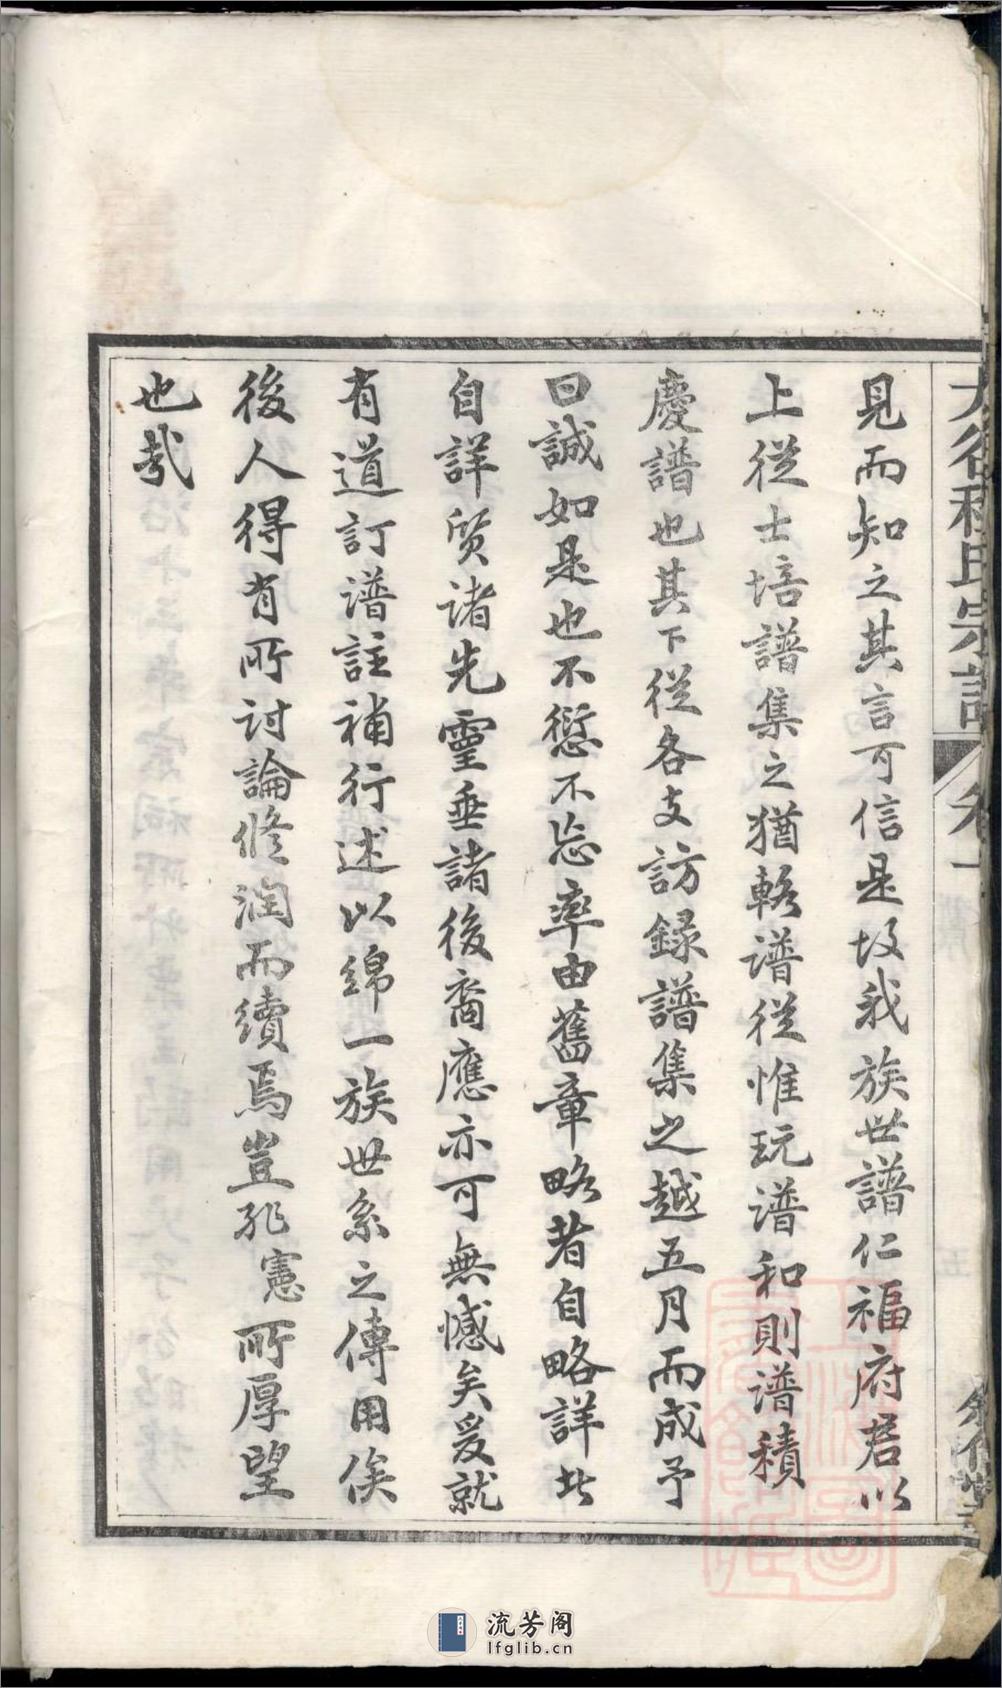 見而知之其言可信是故我族世譜仁福府君以
上從士培譜集之猶輅譜從惟玩譜和則譜積
慶譜也其下從各支訪録譜集之越五月而成予
曰誠如是也不愆不忘率由舊章略者自略詳者
自詳質諸先靈垂諸後裔應亦可無憾矣爰就
有道訂譜註補行述以綿一族世系之傳用俟
後人得有所討論修潤而續焉豈非憲所厚望
也哉
程氏宗譜
流芳阁
lfglib.cn